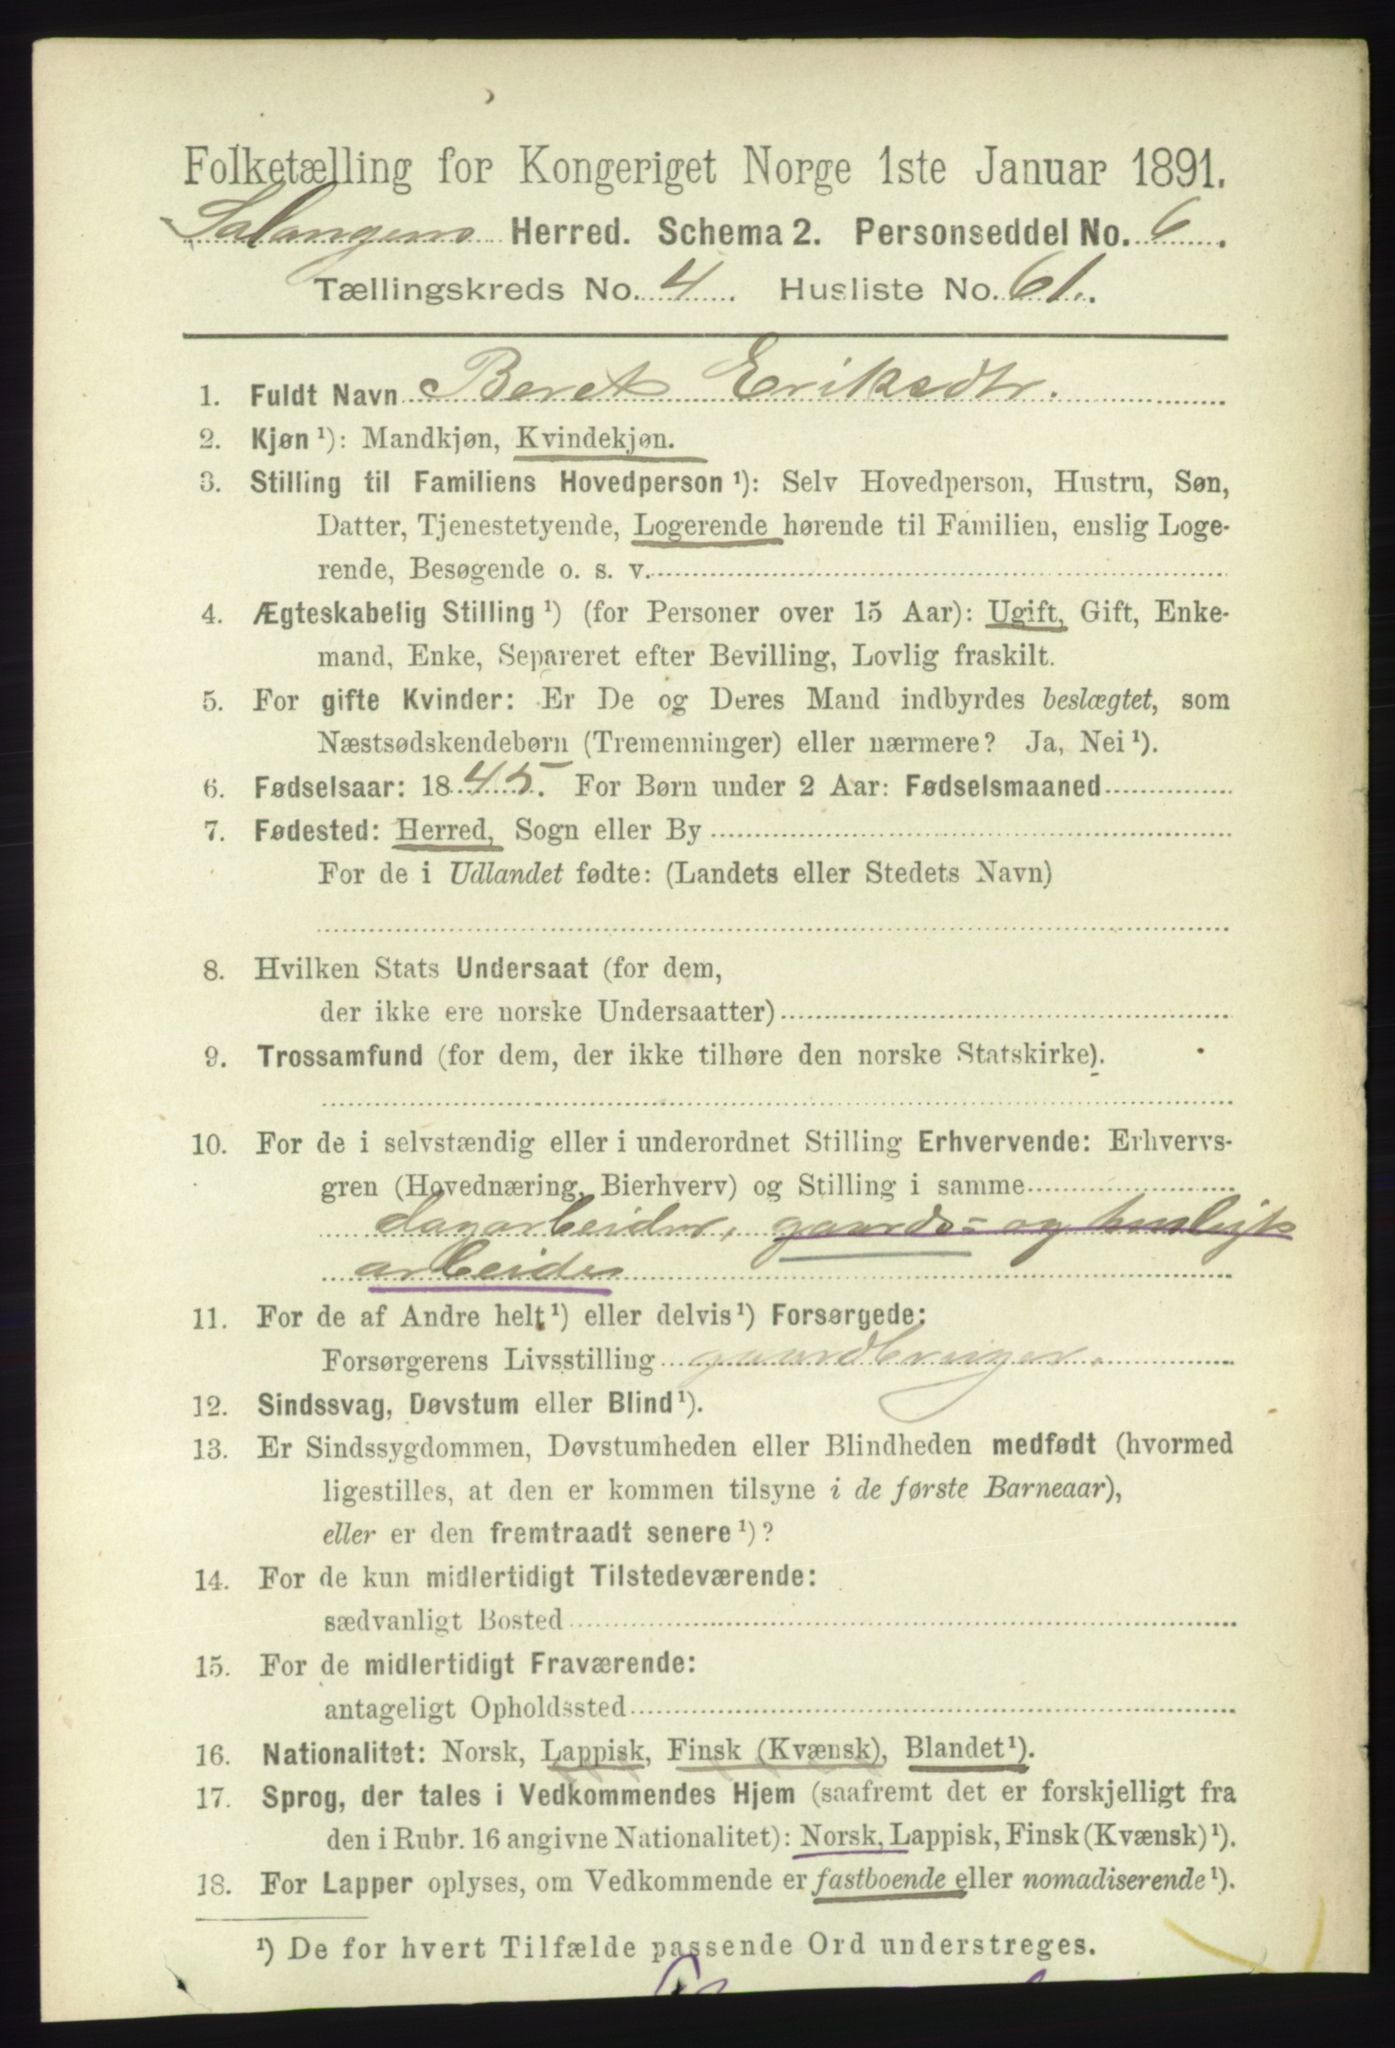 Folketælling for Kongeriget Norge 1ste Januar 1891.
Salangens Herred. Schema 2. Personseddel No. 6.
Tællingskreds No. 4. Husliste No. 61.
1. Fuldt Navn Beret Eriksdtr.
2. Kjøn ¹): Mandkjøn, Kvindekjøn.
3. Stilling til Familiens Hovedperson ¹): Selv Hovedperson, Hustru, Søn,
Datter, Tjenestetyende, Logerende hørende til Familien, enslig Loge-
rende, Besøgende o. s. v.
4. Ægteskabelig Stilling ¹) (for Personer over 15 Aar): Ugift, Gift, Enke-
mand, Enke, Separeret efter Bevilling, Lovlig fraskilt.
5. For gifte Kvinder: Er De og Deres Mand indbyrdes beslægtet, som
Næstsødskendebørn (Tremenninger) eller nærmere? Ja, Nei ¹).
6. Fødselsaar: 1845. For Børn under 2 Aar: Fødselsmaaned
7. Fødested: Herred, Sogn eller By
For de i Udlandet fødte: (Landets eller Stedets Navn)
8. Hvilken Stats Undersaat (for dem,
der ikke ere norske Undersaatter)
9. Trossamfund (for dem, der ikke tilhøre den norske Statskirke).
10. For de i selvstændig eller i underordnet Stilling Erhvervende: Erhvervs-
gren (Hovednæring, Bierhverv) og Stilling i samme
dagarbeider, gaards- og husligt
arbeide
11. For de af Andre helt ¹) eller delvis ¹) Forsørgede:
Forsørgerens Livsstilling gaardbruger.
12. Sindssvag, Døvstum eller Blind ¹).
13. Er Sindssygdommen, Døvstumheden eller Blindheden medfødt (hvormed
ligestilles, at den er kommen tilsyne i de første Barneaar),
eller er den fremtraadt senere ¹)?
14. For de kun midlertidigt Tilstedeværende:
sædvanligt Bosted
15. For de midlertidigt Fraværende:
antageligt Opholdssted
16. Nationalitet: Norsk, Lappisk, Finsk (Kvænsk), Blandet ¹).
17. Sprog, der tales i Vedkommendes Hjem (saafremt det er forskjelligt fra
den i Rubr. 16 angivne Nationalitet): Norsk, Lappisk, Finsk (Kvænsk) ¹).
18. For Lapper oplyses, om Vedkommende er fastboende eller nomadiserende ¹).
¹) De for hvert Tilfælde passende Ord understreges.